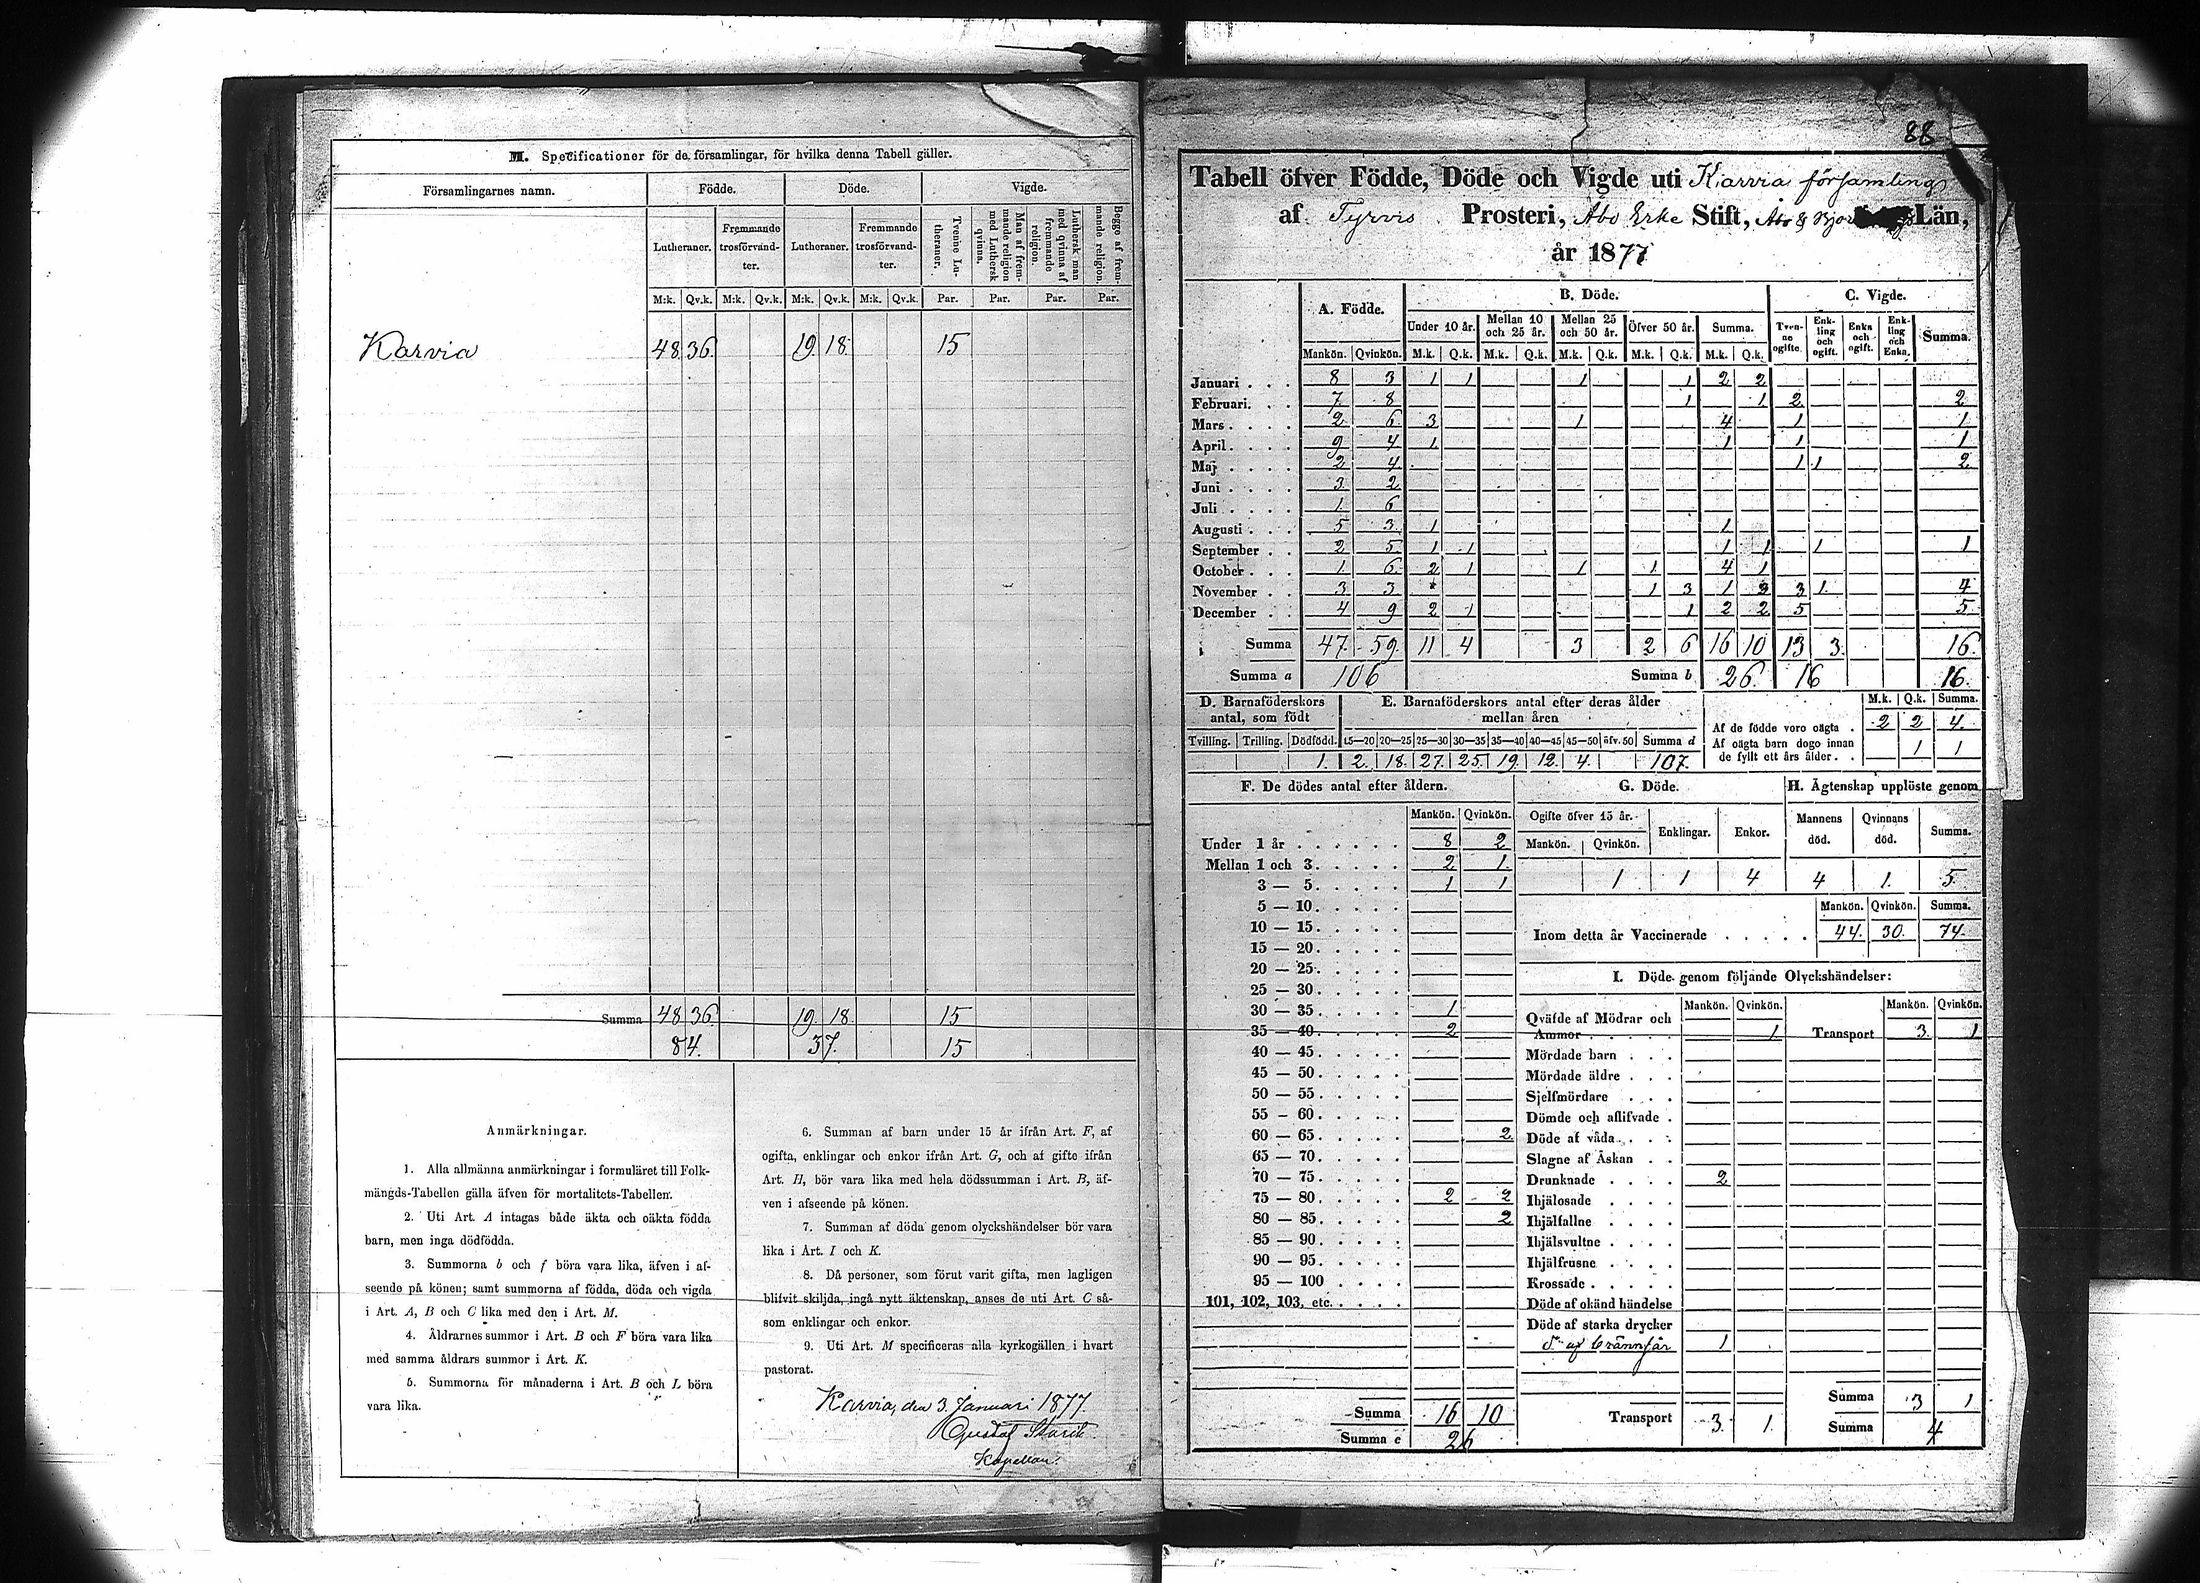 M. Specificationer för de församlingar, för hvilka denna Tabell gäller.
Församlingarnes namn. Födde. Döde. Vigde.
Lutheraner. Fremmande trosförvand-ter. Lutheraner. Fremmande trosförvand-ter. Tvenne Lu-theraner. Man af frem-mande religion med Luthersk qvinna. Luthersk man med qvinna af fremmande religion. Begge af frem-mande religion.
M:k. Qv.k. M:k. Qv.k. M:k. Qv.k. M:k. Qv.k. Par. Par. Par. Par.
Karvia 48 36 19 18 15
Summa 48 36 19 18 15
84 37 15
Anmärkningar.
1. Alla allmänna anmärkningar i formuläret till Folk-
mängds-Tabellen gälla äfven för mortalitets-Tabellen.
2. Uti Art. A intagas både äkta och oäkta födda
barn, men inga dödfödda.
3. Summorna b och f böra vara lika, äfven i af-
seende på könen; samt summorna af födda, döda och vigda
i Art. A, B och C lika med den i Art. M.
4. Åldrarnes summor i Art. B och F böra vara lika
med samma åldrars summor i Art. K.
5. Summorna för månaderna i Art. B och L böra
vara lika.
6. Summan af barn under 15 år ifrån Art. F, af
ogifta, enklingar och enkor ifrån Art. G, och af gifte ifrån
Art. H, bör vara lika med hela dödssumman i Art. B, äf-
ven i afseende på könen.
7. Summan af döda genom olyckshändelser bör vara
lika i Art. I och K.
8. Då personer, som förut varit gifta, men lagligen
blifvit skiljda, ingå nytt äktenskap, anses de uti Art. C så-
som enklingar och enkor.
9. Uti Art. M specificeras alla kyrkogällen i hvart
pastorat.
Karvia, den 3 Januari 1877
Gustaf
Kapellan.
88
Tabell öfver Födde, Döde och Vigde uti Karvia församling
af Tyrvis Prosteri, Åbo Erke Stift, Åbo & Län,
år 1877
A. Födde. B. Döde. C. Vigde.
Under 10 år. Mellan 10 och 25 år. Mellan 25 och 50 år. Öfver 50 år. Summa. Tven-ne ogifte. Enk-ling och ogift. Enka och ogift. Enk-ling och Enka. Summa.
Mankön. Qvinkön. M.k. Q.k. M.k. Q.k. M.k. Q.k. M.k. Q.k. M.k. Q.k.
Januari 8 3 1 1 1 1 2 2
Februari. 7 8 1 1 2 2
Mars 2 6 3 1 4 1 1
April 9 4 1 1 1 1
Maj 2 4 1 1 2
Juni 3 2
Juli 1 6
Augusti 5 3 1 1
September 2 5 1 1 1 1 1 1
October 1 6 2 1 1 1 4 1
November 3 3 1 3 1 3 3 1 4
December 4 9 2 1 1 2 2 5 5
Summa 47 59 11 4 3 2 6 16 10 13 3 16
Summa a 106 Summa b 26 16 16
D. Barnaföderskors antal, som födt
E. Barnaföderskors antal efter deras ålder mellan åren
M.k. Q.k. Summa.
Af de födde voro oägta 2 2 4
Af oägta barn dogo innan de fyllt ett års ålder 1 1
Tvilling. Trilling. Dödfödd. 15—20 20—25 25—30 30—35 35—40 40—45 45—50 öfv. 50 Summa d
1 2 18 27 25 19 12 4 107
F. De dödes antal efter åldern.
Mankön. Qvinkön.
Under 1 år 8 2
Mellan 1 och 3 2 1
3 — 5 1 1
5 — 10
10 — 15
15 — 20
20 — 25
25 — 30
30 — 35 1
35 — 40 2
40 — 45
45 — 50
50 — 55
55 — 60
60 — 65 2
65 — 70
70 — 75
75 — 80 2 2
80 — 85 2
85 — 90
90 — 95
95 — 100
101, 102, 103, etc.
Summa 16 10
Summa c 26
G. Döde.
Ogifte öfver 15 år. Enklingar. Enkor.
Mankön. Qvinkön.
1 1 4
H. Ägtenskap upplöste genom
Mannens död. Qvinnans död. Summa.
4 1 5
Mankön. Qvinkön. Summa.
Inom detta år Vaccinerade 44 30 74
I. Döde genom följande Olyckshändelser:
Mankön. Qvinkön. Mankön. Qvinkön.
Qväfde af Mödrar och
Ammor 1 Transport 3 1
Mördade barn
Mördade äldre
Sjelfmördare
Dömde och aflifvade
Döde af våda
Slagne af Åskan
Drunknade 2
Ihjälosade
Ihjälfallne
Ihjälsvultne
Ihjälfrusne
Krossade
Döde af okänd händelse
Döde af starka drycker
af brännsår 1
Summa 3 1
Transport 3 1 Summa 4